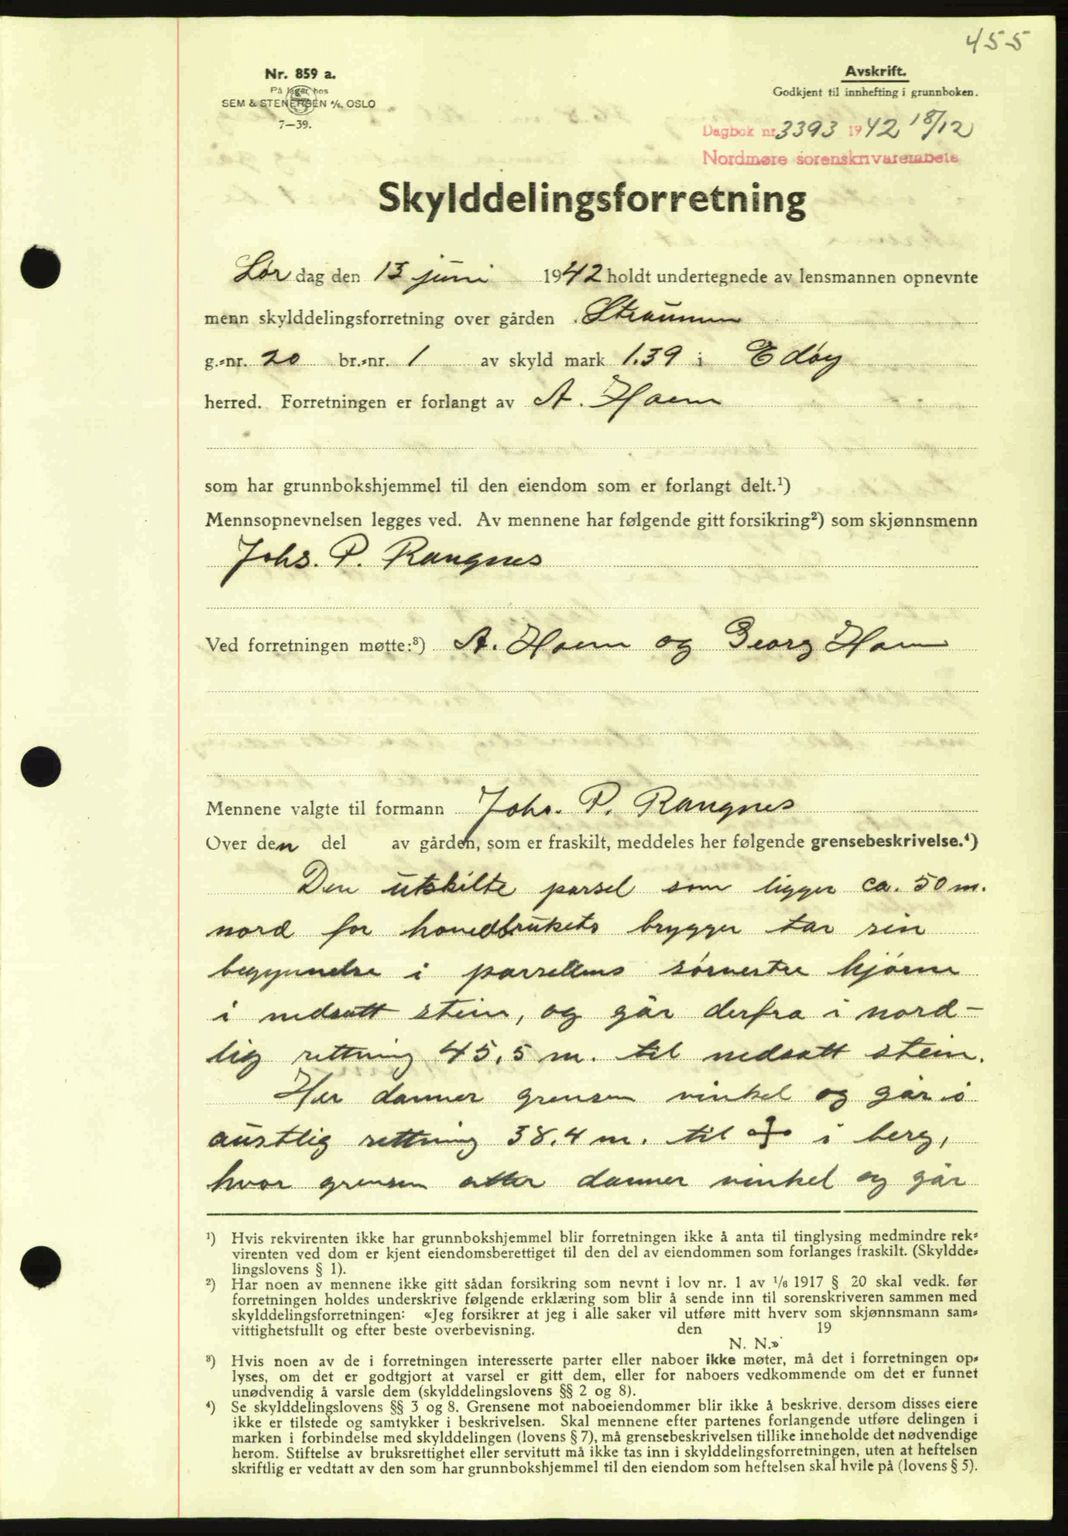 455
Nr. 859 a.
På lager hos
SEM & STENERSEN A/S, OSLO
7—39.
Avskrift.
Godkjent til innhefting i grunnboken.
Dagbok nr. 3393 1942 18/12
Nordmøre sorenskriverembete
Skylddelingsforretning
Lør dag den 13 juni 1942 holdt undertegnede av lensmannen opnevnte
menn skylddelingsforretning over gården Straumen
g.-nr. 20 br.-nr. 1 av skyld mark 1.39 i Edøy
herred. Forretningen er forlangt av A. Hoem
som har grunnbokshjemmel til den eiendom som er forlangt delt.¹)
Mennsopnevnelsen legges ved. Av mennene har følgende gitt forsikring²) som skjønnsmenn
Johs. P. Rangnes
Ved forretningen møtte:³) A. Hoem og Georg Hoem
Mennene valgte til formann Johs. P. Rangnes
Over den del av gården, som er fraskilt, meddeles her følgende grensebeskrivelse.⁴)
Den utskilte parsel som ligger ca. 50 m.
nord for hovedbrukets brygger tar sin
begynnelse i parsellens sørvestre hjørne
i nedsatt stein, og går derfra i nord-
lig rettning 45,5 m. til nedsatt stein.
Her danner grensen vinkel og går i
austlig rettning 38.4 m. til + i berg,
hvor grensen atter danner vinkel og går
¹) Hvis rekvirenten ikke har grunnbokshjemmel blir forretningen ikke å anta til tinglysing medmindre rek-
virenten ved dom er kjent eiendomsberettiget til den del av eiendommen som forlanges fraskilt. (Skyldde-
lingslovens § 1).
²) Har noen av mennene ikke gitt sådan forsikring som nevnt i lov nr. 1 av 1/6 1917 § 20 skal vedk. før
forretningen holdes underskrive følgende erklæring som blir å sende inn til sorenskriveren sammen med
skylddelingsforretningen: «Jeg forsikrer at jeg i alle saker vil utføre mitt hverv som skjønnsmann sam-
vittighetsfullt og efter beste overbevisning. den 19
N. N.»
³) Hvis noen av de i forretningen interesserte parter eller naboer ikke møter, må det i forretningen op-
lyses, om det er godtgjort at varsel er gitt dem, eller for naboers vedkommende om det er funnet
unødvendig å varsle dem (skylddelingslovens §§ 2 og 8).
⁴) Se skylddelingslovens §§ 3 og 8. Grensene mot naboeiendommer blir ikke å beskrive, dersom disses eiere
ikke er tilstede og samtykker i beskrivelsen. Skal mennene efter partenes forlangende utføre delingen i
marken i forbindelse med skylddelingen (lovens § 7), må grensebeskrivelsen tillike inneholde det nødvendige
herom. Stiftelse av bruksrettighet eller servitutt må ikke tas inn i skylddelingsforretningen, uten at heftelsen
skriftlig er vedtatt av den som har grunnbokshjemmel til den eiendom som heftelsen skal hvile på (lovens § 5).